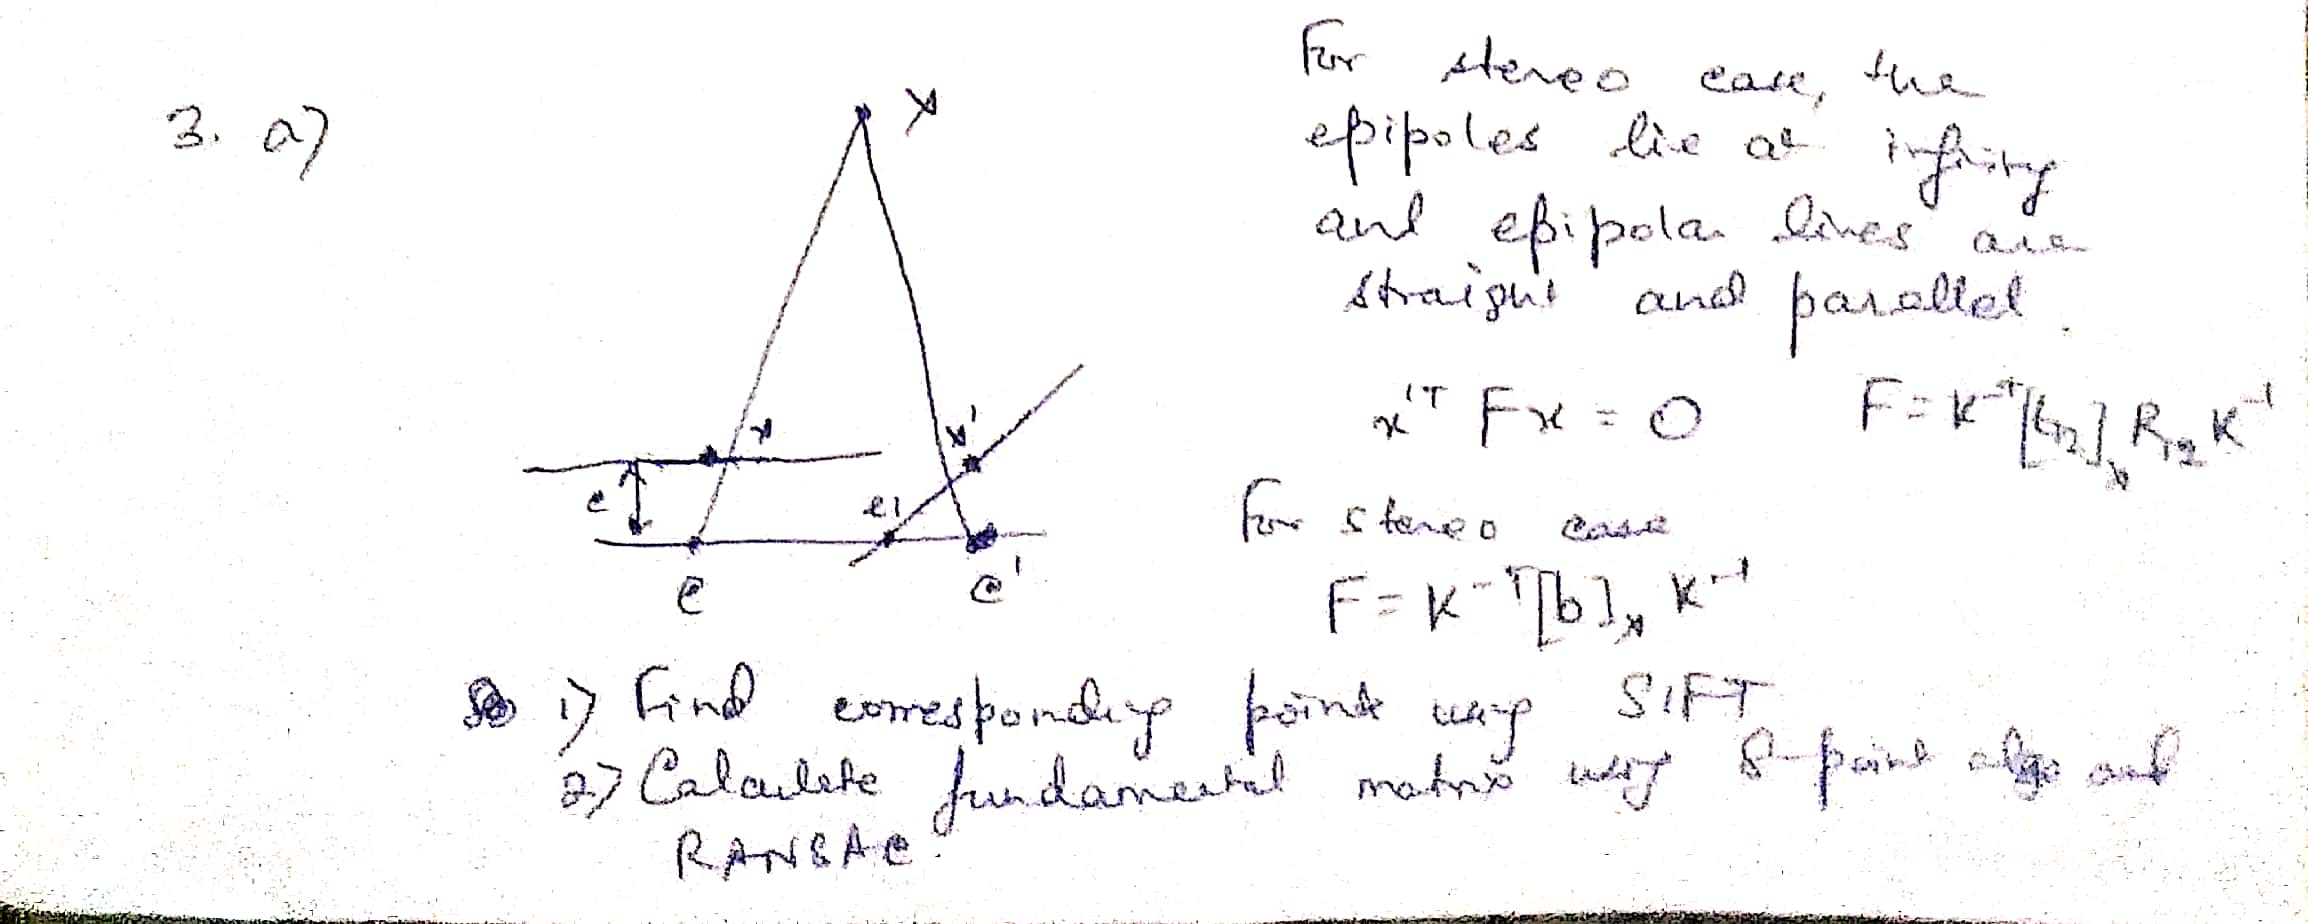 3. a)
X
For stereo case, the
epipoles lie at infinity
and epipolar lines are
straight and parallel.
x'ᵀ F x = 0 F = K⁻ᵀ[t₁₂]ₓ R₁₂ K⁻¹
x
x'
e
e'
For stereo case
F = K⁻ᵀ[b]ₓ K⁻¹
c
c'
1) Find corresponding points using SIFT
2) Calculate fundamental matrix using 8-point algo and
RANSAC.